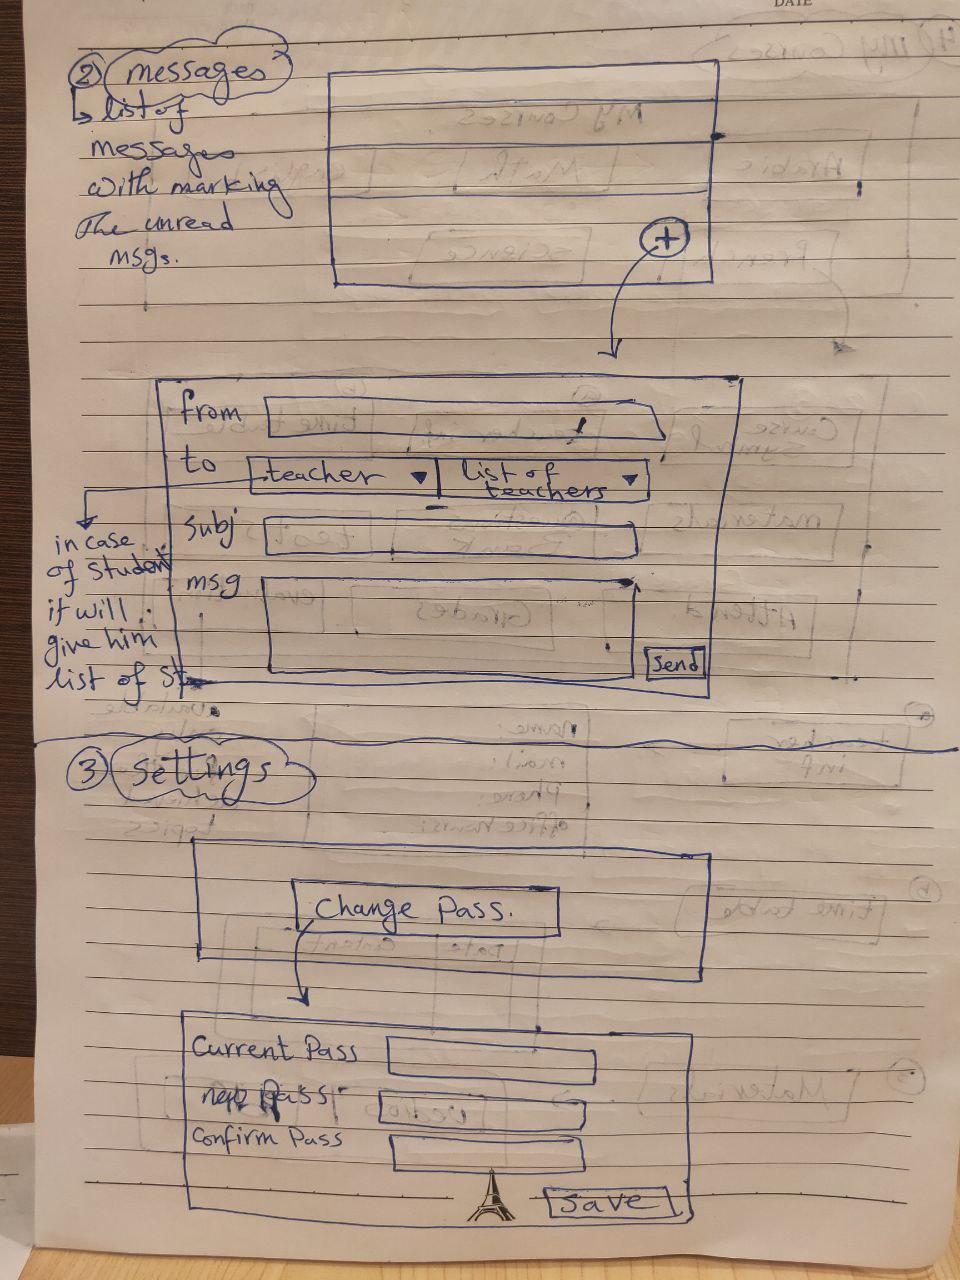 DATE
② messages
list of
messages
with marking
The unread
msgs.
+
from
to
teacher
list of
teachers
subj
msg
send
in case
of student
it will
give him
list of st
③ Settings
Change Pass.
Current Pass
new pass
Confirm Pass
Save